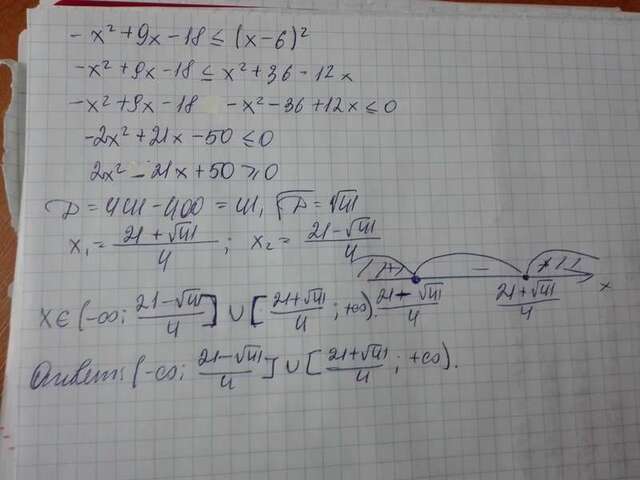 -x²+9x-18≤(x-6)²
-x²+9x-18≤x²+36-12x
-x²+9x-18 -x²-36+12x≤0
-2x²+21x-50≤0
2x²-21x+50≥0
D=441-400=41, √D=√41
x₁=(21+√41)/4; x₂=(21-√41)/4
+ - + x
(21-√41)/4 (21+√41)/4
x∈(-∞; (21-√41)/4]∪[(21+√41)/4; +∞).
Ответ: (-∞; (21-√41)/4]∪[(21+√41)/4; +∞).